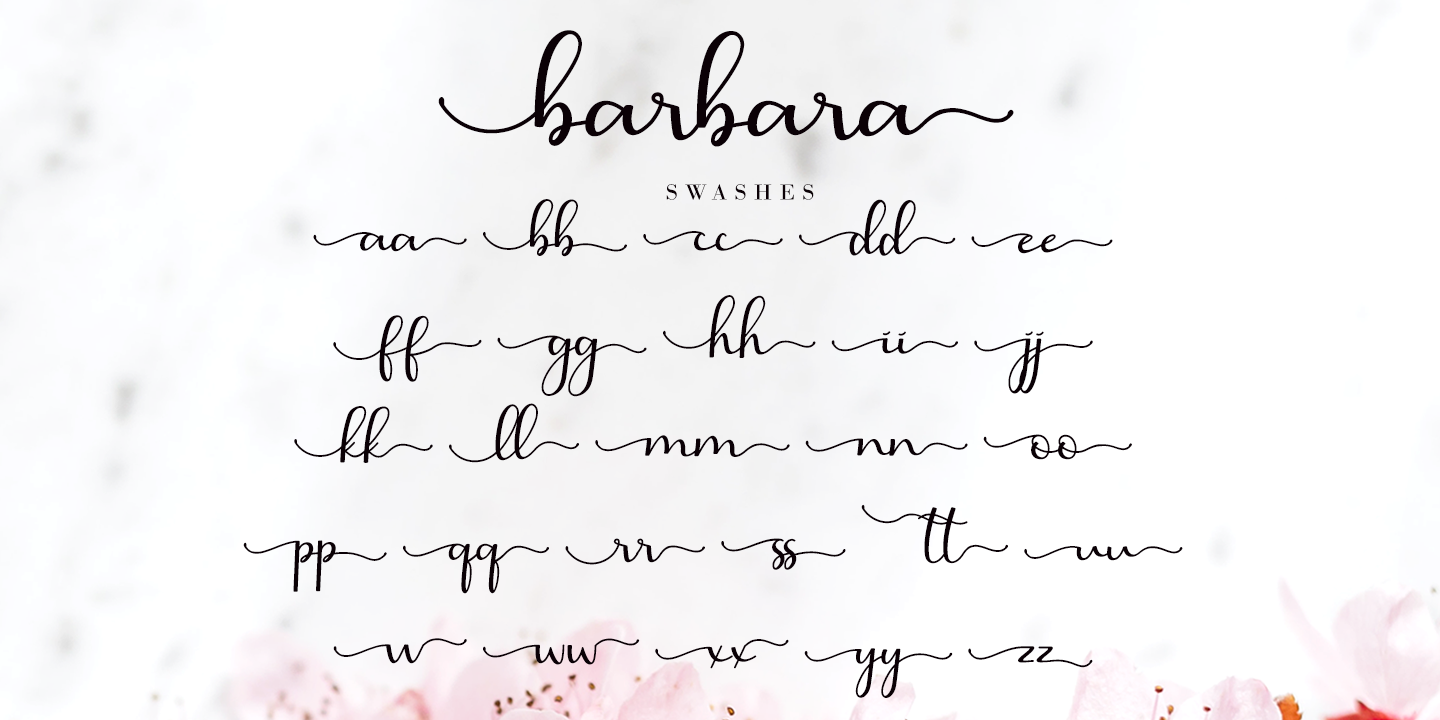 barbara
SWASHES
aa bb cc dd ee
ff gg hh ii jj
kk ll mm nn oo
pp qq rr ss tt uu
vv ww xx yy zz